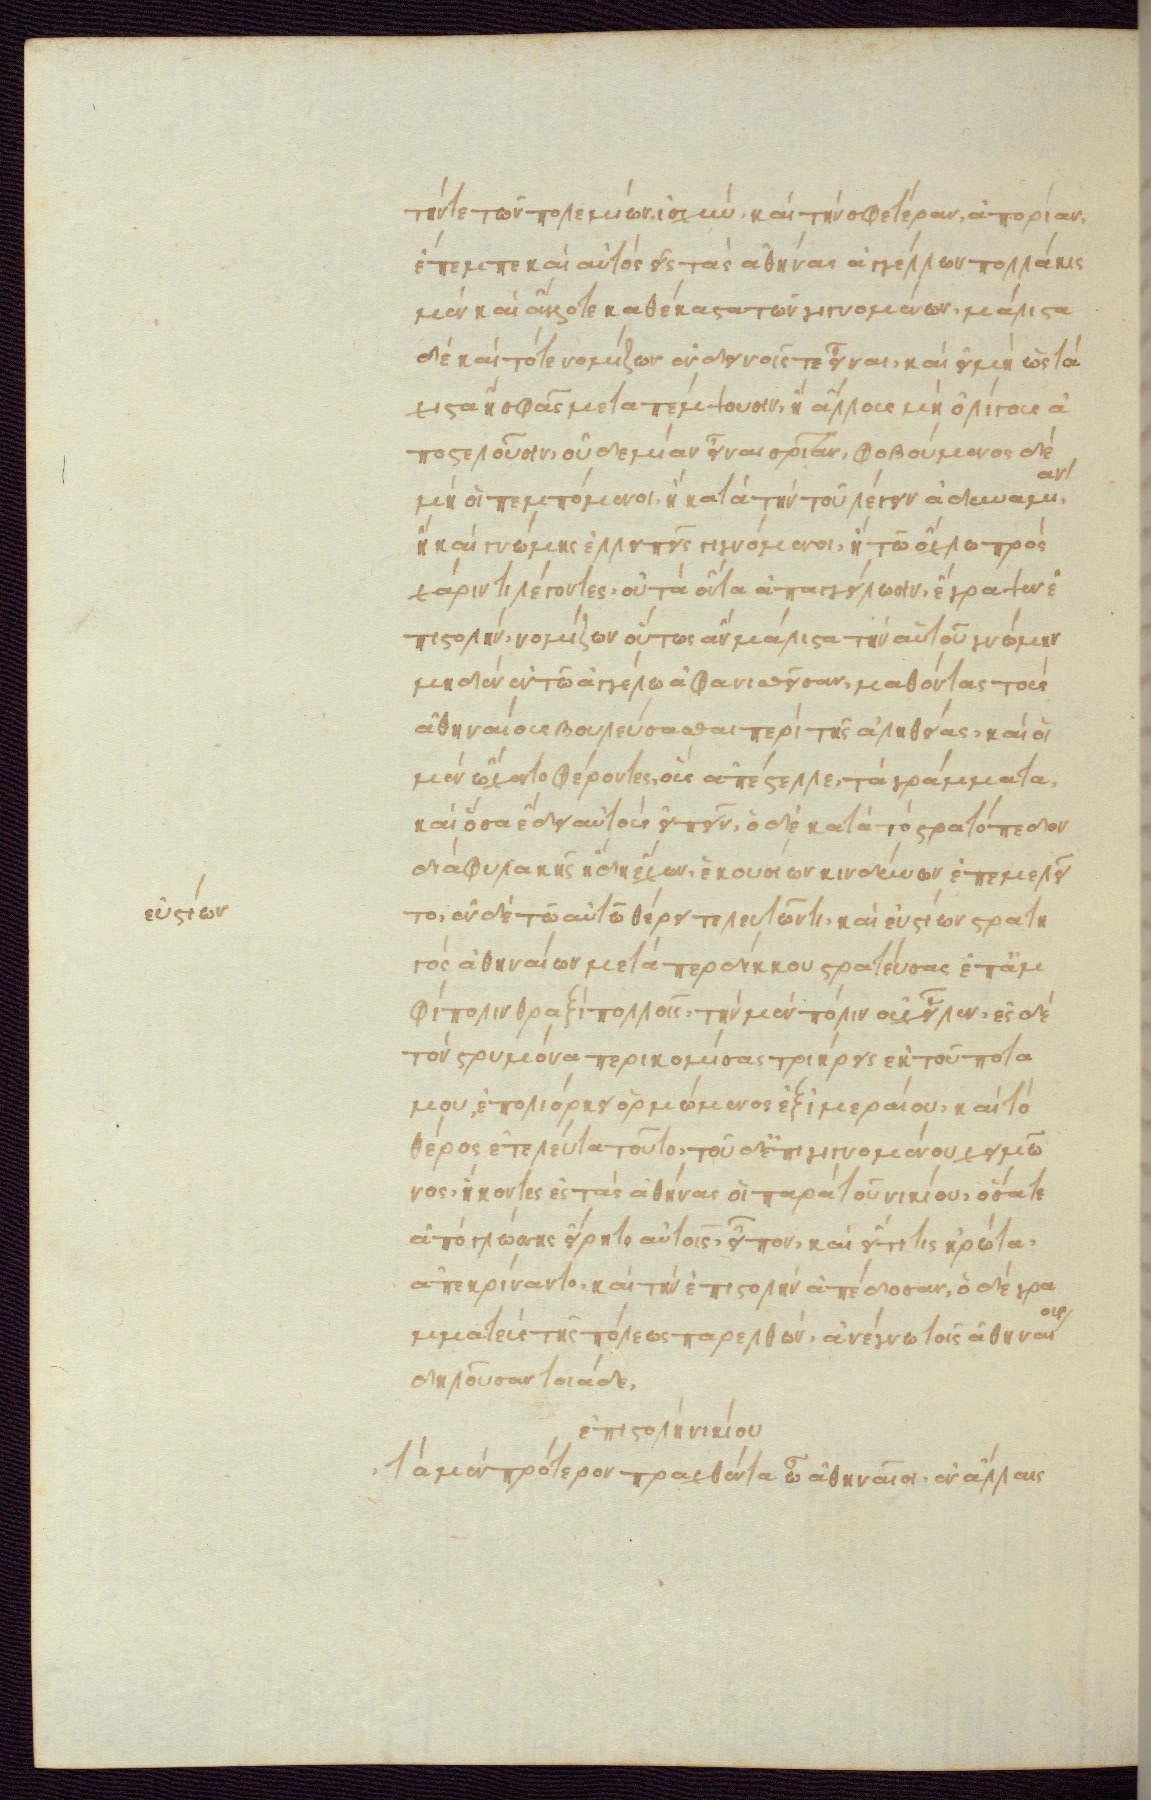 τήν τε τῶν πολεμίων ἰσχύν, καὶ τὴν σφετέραν, ἀπορίαν,
ἔπεμπε καὶ αὐτὸς εἰς τὰς ἀθήνας ἀγγέλλων πολλάκις
μὲν καὶ ἄλλοτε καθέκαστα τῶν γιγνομένων, μάλιστα
δὲ καὶ τότε νομίζων ἐν δεινοῖς τε εἶναι, καὶ εἰ μὴ ὡς τά
χιστα ἢ σφᾶς μεταπέμψουσιν, ἢ ἄλλους μὴ ὀλίγους ἀ
ποστελοῦσιν, οὐδεμίαν εἶναι σρίαν, φοβούμενος δὲ
μὴ οἱ πεμπόμενοι, ἢ κατὰ τὴν τοῦ λέγειν ἀδυναμίαν,
ἢ καὶ γνώμης ἐλλιπεῖς γιγνόμενοι, ἢ τῷ ὄχλῳ πρὸς
χάριν τι λέγοντες, οὐ τὰ ὄντα ἀπαγγείλωσιν, ἔγραψεν ἐ
πιστολήν, νομίζων οὕτως ἂν μάλιστα τὴν αὐτοῦ γνώμην
μηδὲν ἐν τῷ ἀγγέλῳ ἀφανισθεῖσαν, μαθόντας τοὺς
ἀθηναίους βουλεύσασθαι περὶ τῆς ἀληθείας, καὶ οἱ
μὲν ᾤχοντο φέροντες, οὓς ἀπέστελλε, τὰ γράμματα,
καὶ ὅσα ἔδει αὐτοὺς εἰπεῖν, ὁ δὲ κατὰ τὸ στρατόπεδον
διὰ φυλακῆς ἤδη ἔχων, ἑκουσίων κινδύνων ἐπεμελεῖ
το, ἐν δὲ τῷ αὐτῷ θέρει τελευτῶντι, καὶ εὐετίων στρατη
γὸς ἀθηναίων μετὰ περδίκκου στρατεύσας ἐπ' ἀμ
φίπολιν θραξὶ πολλοῖς, τὴν μὲν πόλιν οὐχ εἷλεν, ἐς δὲ
τὸν στρυμόνα περικομίσας τριήρεις ἐκ τοῦ ποτα
μου, ἐπολιόρκει ὁρμώμενος ἐξ ἱμεραίου, καὶ τὸ
θέρος ἐτελεύτα τοῦτο, τοῦ δ' ἐπιγιγνομένου χειμῶ
νος, ἥκοντες ἐς τὰς ἀθήνας οἱ παρὰ τοῦ νικίου, ὅσα τε
ἀπὸ γλώσσης εἴρητο αὐτοῖς, εἶπον, καὶ εἴ τί τις ἠρώτα,
ἀπεκρίναντο, καὶ τὴν ἐπιστολὴν ἀπέδοσαν, ὁ δὲ γρα
μματεὺς τῆς πόλεως παρελθών, ἀνέγνω τοῖς ἀθηναίοις
δηλοῦσαν τοιάδε,
εὐετίων
ἐπιστολὴ νικίου
τὰ μὲν πρότερον πραχθέντα ὦ ἀθηναῖοι, ἐν ἄλλαις